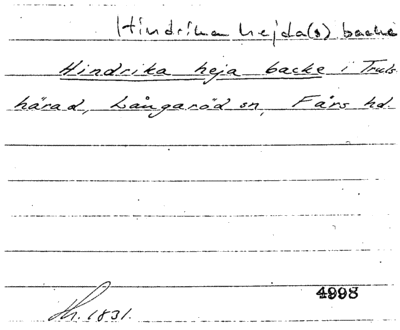 Hindrika hejda(s) backe
Hindrika heja backe i Truls
härad, Långaröd sn, Färs hd.
1831.
4998